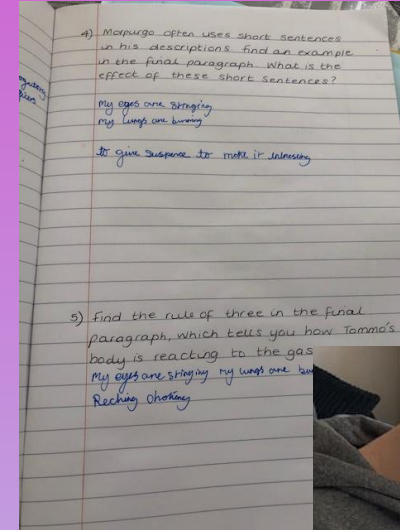 4) Morpurgo often uses short sentences
in his descriptions find an example
in the final paragraph. What is the
effect of these short sentences?
My eyes are stinging
my lungs are burning
to give suspence to make it
5) find the rule of three in the final
paragraph, which tells you how Tommo's
body is reacting to the gas
My eyes are stinging my lungs are
Reching